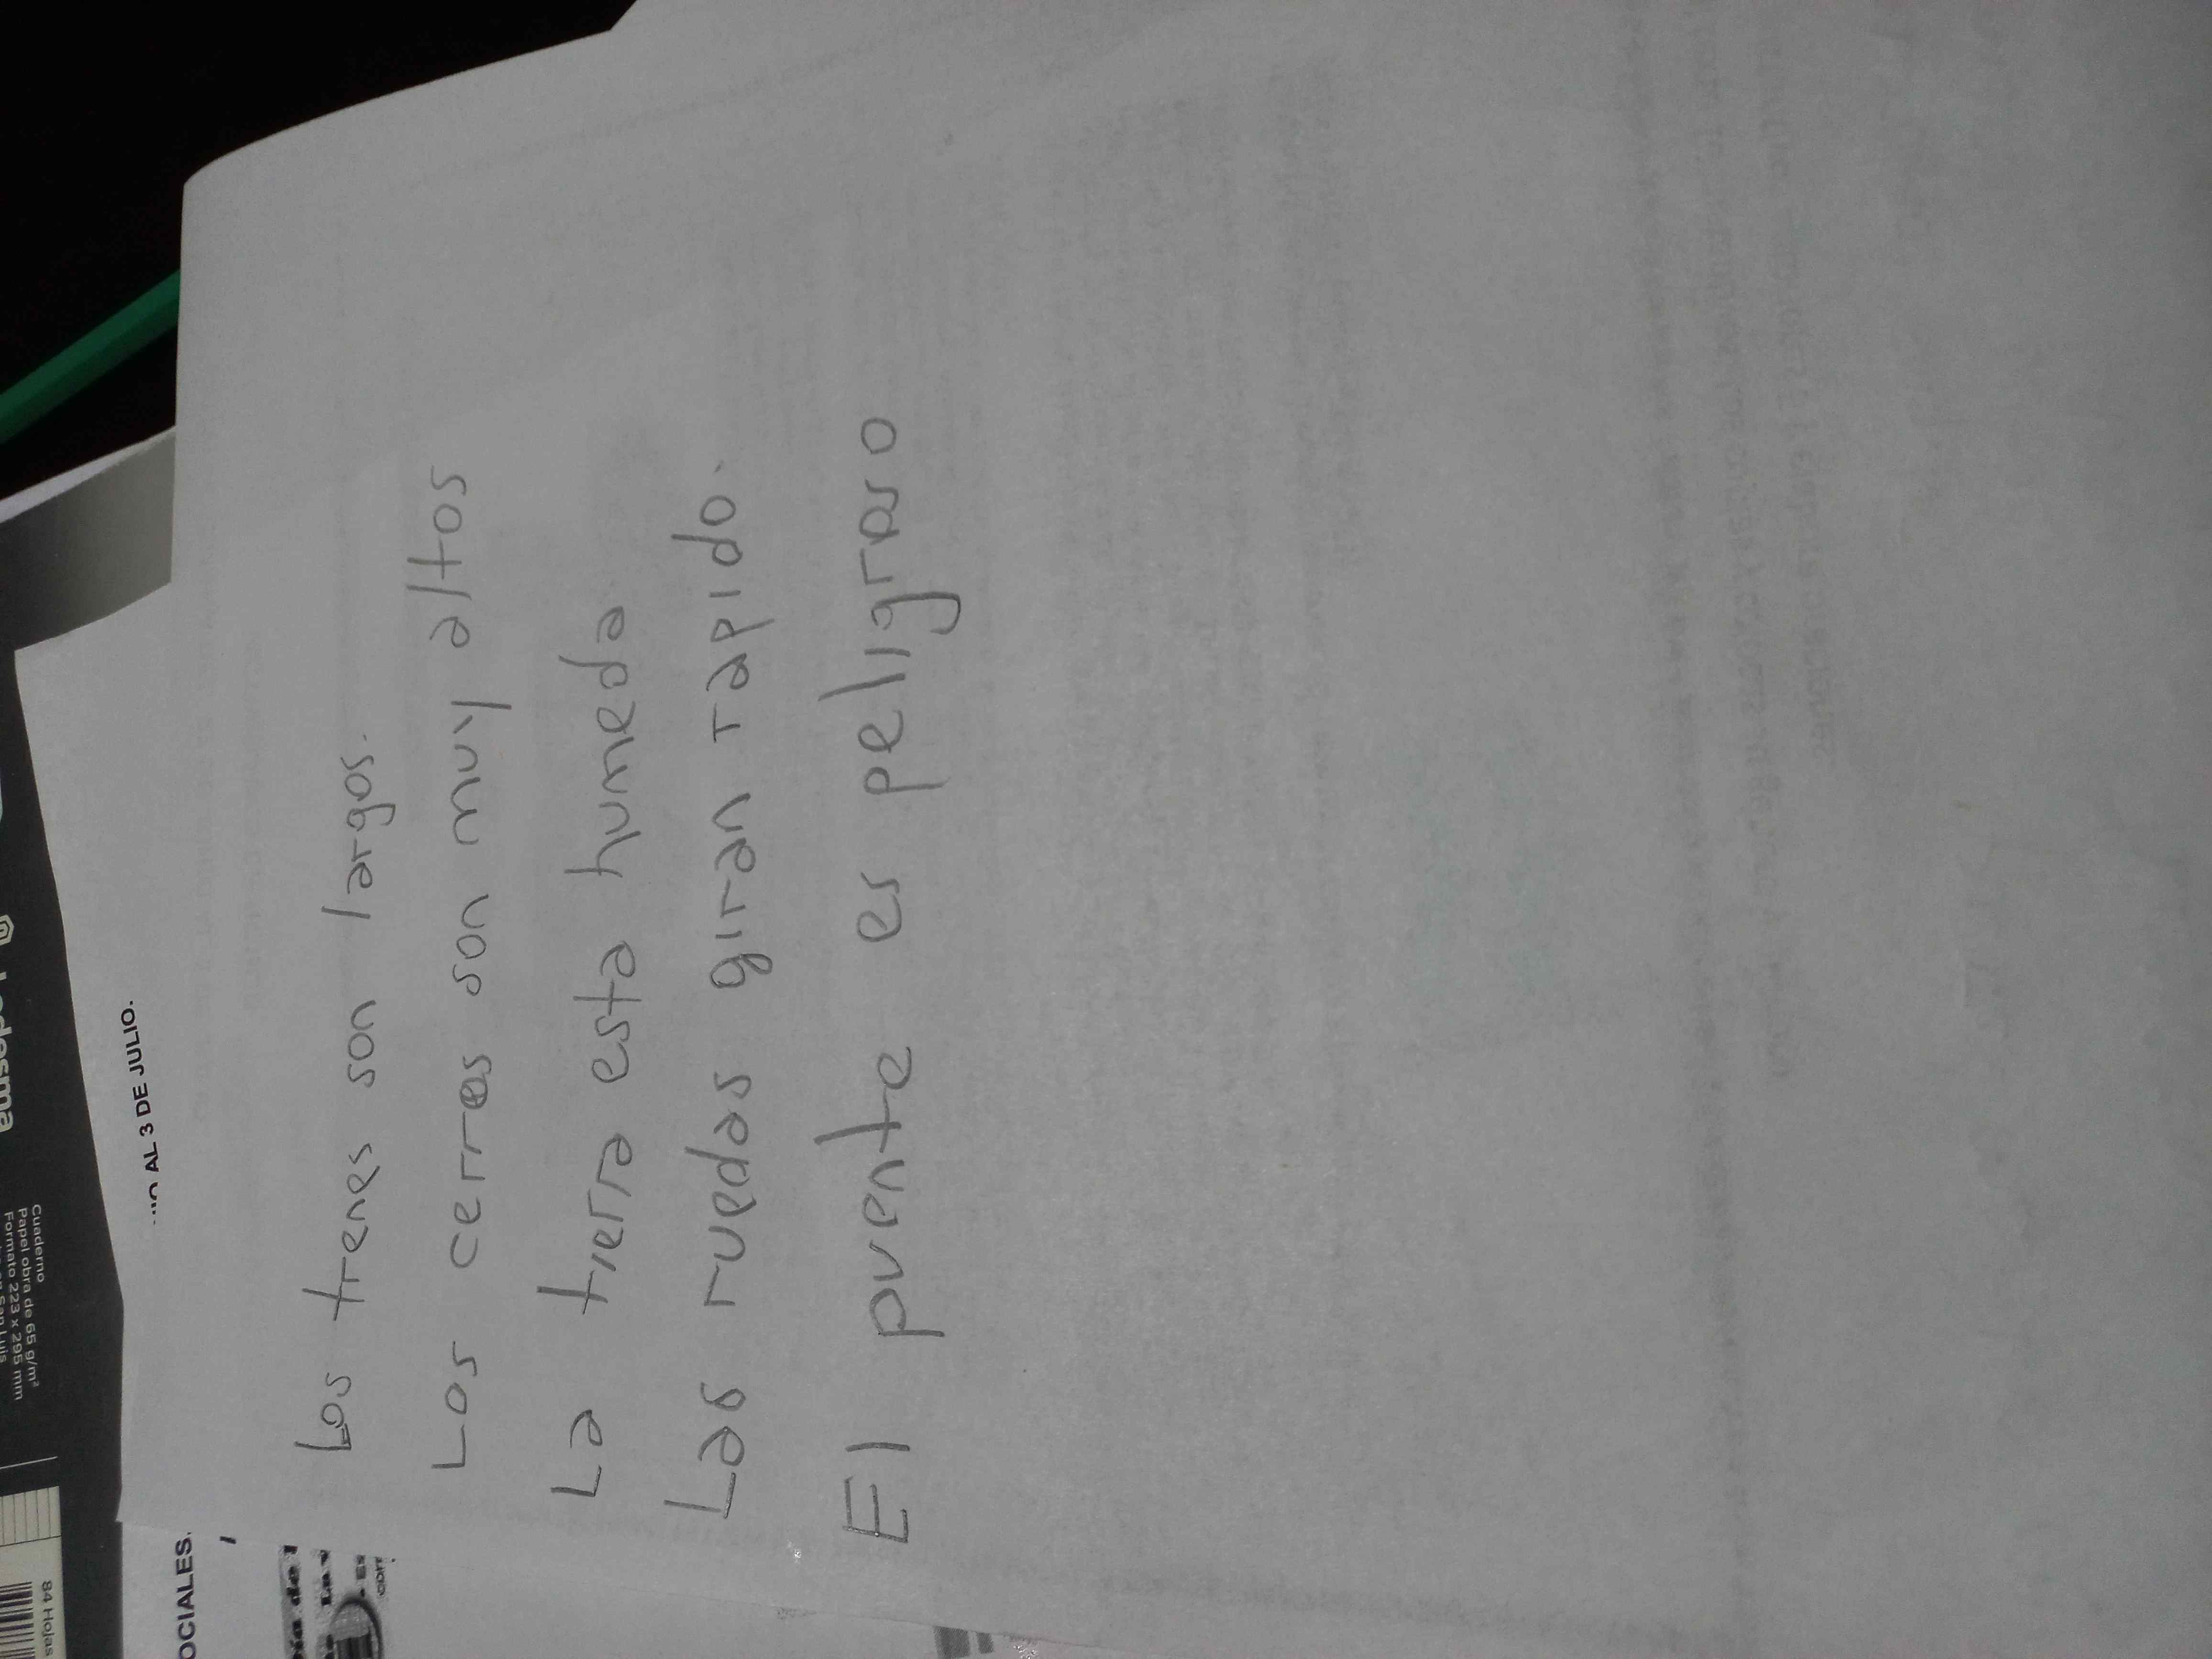 Los trenes son largos.
Los cerros son muy altos
La tierra esta humeda
Las ruedas giran rapido.
El puente es peligroso
AL 3 DE JULIO.
OCIALES.
Ledesma
Cuaderno
Papel obra de 65 g/m²
Formato 223 x 295 mm
San Luis
84 Hojas